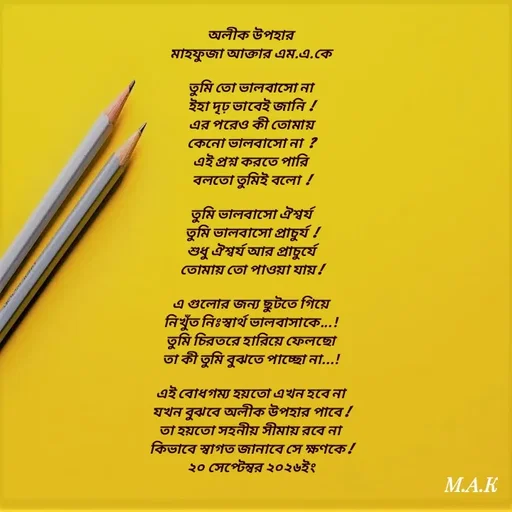 অলীক উপহার
মাহফুজা আক্তার এম.এ.কে
তুমি তো ভালবাসো না
ইহা দৃঢ় ভাবেই জানি !
এর পরেও কী তোমায়
কেনো ভালবাসো না ?
এই প্রশ্ন করতে পারি
বলতো তুমিই বলো !
তুমি ভালবাসো ঐশ্বর্য
তুমি ভালবাসো প্রাচুর্য !
শুধু ঐশ্বর্য আর প্রাচুর্যে
তোমায় তো পাওয়া যায় !
এ গুলোর জন্য ছুটতে গিয়ে
নিখুঁত নিঃস্বার্থ ভালবাসাকে...!
তুমি চিরতরে হারিয়ে ফেলছো
তা কী তুমি বুঝতে পাচ্ছো না...!
এই বোধগম্য হয়তো এখন হবে না
যখন বুঝবে অলীক উপহার পাবে !
তা হয়তো সহনীয় সীমায় রবে না
কিভাবে স্বাগত জানাবে সে ক্ষণকে !
২০ সেপ্টেম্বর ২০২৬ইং
M.A.K